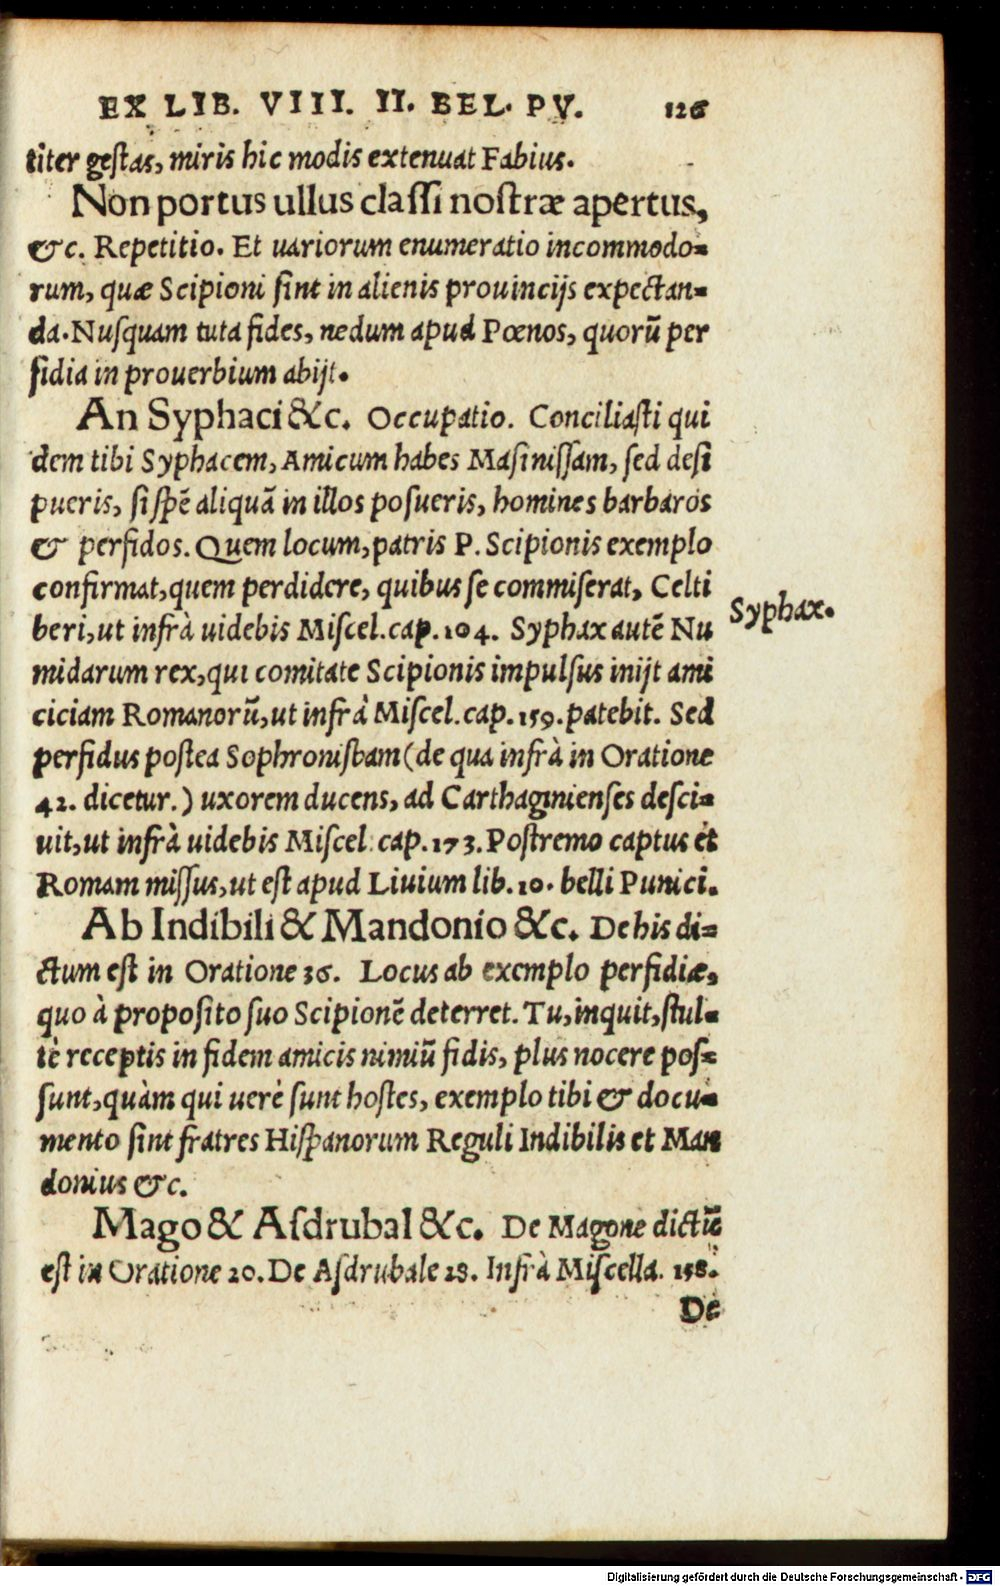 EX LIB. VIII. II. BEL. PV. 126
titer gestas, miris hic modis extenuat Fabius.
Non portus ullus classi nostræ apertus,
&c. Repetitio. Et uariorum enumeratio incommodo-
rum, quæ Scipioni sint in alienis prouincijs expectan-
da. Nusquam tuta fides, nedum apud Pœnos, quorū per
fidia in prouerbium abijt.
An Syphaci &c. Occupatio. Conciliasti qui
dem tibi Syphacem, Amicum habes Masinissam, sed desi
pueris, si spē aliquā in illos posueris, homines barbaros
& perfidos. Quem locum, patris P. Scipionis exemplo
confirmat, quem perdidere, quibus se commiserat, Celti
beri, ut infrà uidebis Miscel. cap. 104. Syphax autē Nu
Syphax.
midarum rex, qui comitate Scipionis impulsus inijt ami
ciciam Romanorū, ut infrà Miscel. cap. 159. patebit. Sed
perfidus postea Sophronisbam (de qua infrà in Oratione
42. dicetur.) uxorem ducens, ad Carthaginienses desci-
uit, ut infrà uidebis Miscel. cap. 173. Postremo captus et
Romam missus, ut est apud Liuium lib. 10. belli Punici.
Ab Indibili & Mandonio &c. De his di-
ctum est in Oratione 36. Locus ab exemplo perfidiæ,
quo à proposito suo Scipionē deterret. Tu, inquit, stul-
tè receptis in fidem amicis nimiū fidis, plus nocere pos-
sunt, quàm qui uerè sunt hostes, exemplo tibi & docu-
mento sint fratres Hispanorum Reguli Indibilis et Man
donius &c.
Mago & Asdrubal &c. De Magone dictū
est in Oratione 20. De Asdrubale 28. Infrà Miscella. 158.
De
Digitalisierung gefördert durch die Deutsche Forschungsgemeinschaft - DFG